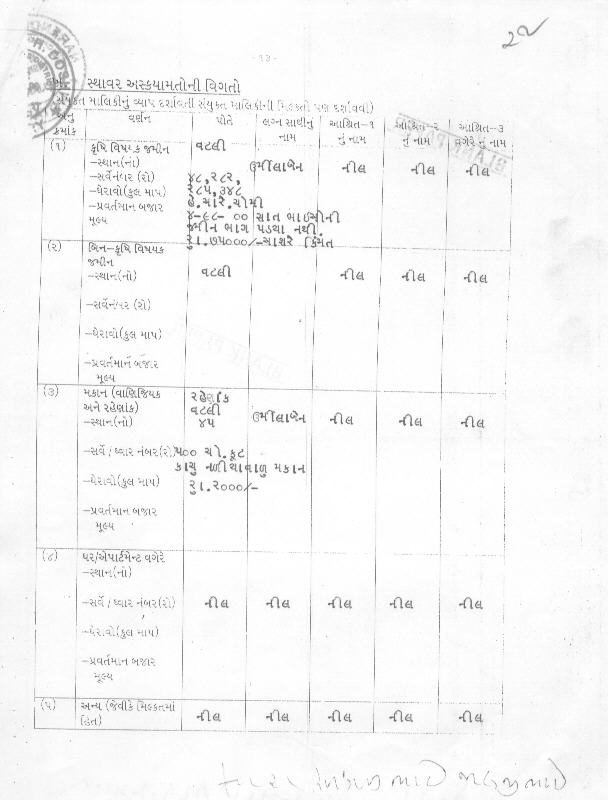 - ૧૩ -
સ્થાવર અસ્કયામતોની વિગતો
સંયુક્ત માલિકીનું વ્યાપ દર્શાવતી સંયુક્ત માલિકીની મિલ્કતો પણ દર્શાવવી)
અનુ ક્રમાંક વર્ણન પોતે લગ્ન સાથીનું નામ આશ્રિત-૧ નું નામ આશ્રિત-૨ નું નામ આશ્રિત-૩ વગેરે નું નામ
(૧) કૃષિ વિષયક જમીન વટલી
-સ્થાન(નાં) ઉર્મીલાબેન નીલ નીલ નીલ
-સર્વેનંબર (રો) ૪૮,૨૮૨,
-ઘેરાવો(કુલ માપ) ૨૮૫,૩૪૮
-પ્રવર્તમાન બજાર હે.આરે.ચોમી
મૂલ્ય ૪-૯૮- ૦૦ સાત ભાઈઓની
જમીન ભાગ પડયા નથી.
રુા.૭૫૦૦૦/-આશરે કિંમત
(૨) બિન-કૃષિ વિષયક
જમીન
-સ્થાન(નો) વટલી નીલ નીલ નીલ
-સર્વેનંબર (રો)
-ઘેરાવો(કુલ માપ)
-પ્રવર્તમાન બજાર
મૂલ્ય
(૩) મકાન (વાણિજિયક રહેણાંક
અને રહેણાંક) વટલી
-સ્થાન(નો) ૪૫ ઉર્મીલાબેન નીલ નીલ નીલ
-સર્વે / ધ્વાર નંબર(રો) ૫૦૦ ચો.ફૂટ
કાચુ નળીયાવાળુ મકાન
-ઘેરાવો(કુલ માપ) રુા.૨૦૦૦/-
-પ્રવર્તમાન બજાર
મૂલ્ય
(૪) ઘર/એપાર્ટમેન્ટ વગેરે
-સ્થાન(નો)
-સર્વે / ધ્વાર નંબર(રો) નીલ નીલ નીલ નીલ નીલ
-ઘેરાવો(કુલ માપ)
-પ્રવર્તમાન બજાર
મૂલ્ય
(૫) અન્ય (જેવીકે મિલ્કતમાં
હિત) નીલ નીલ નીલ નીલ નીલ